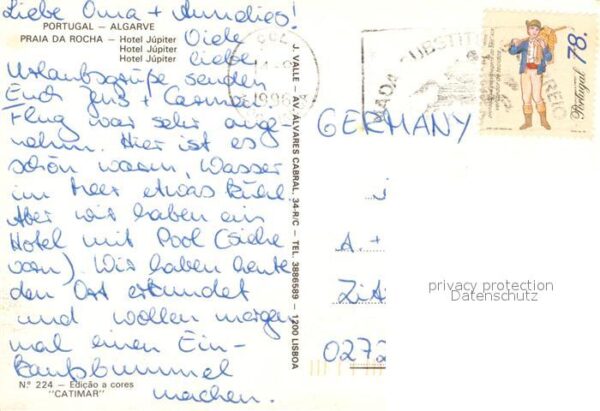 Liebe Oma + Anndies!
PORTUGAL – ALGARVE
PRAIA DA ROCHA – Hotel Júpiter
Hotel Júpiter
Hotel Júpiter
Viele
liebe
Urlaubsgrüße senden
Euch Jens + Carmen.
Flug war sehr ange-
nehm. Hier ist es
schön warm, Wasser
im Meer etwas kühl.
Aber wir haben ein
Hotel mit Pool (siehe
vorn). Wir haben heute
den Ort erkundet
und wollen morgen
mal einen Ein-
kaufsbummel
machen.
Nº 224 – Edição a cores
"CATIMAR"
J. VALLE – AV. ÁLVARES CABRAL, 34-R/C – TEL. 3886589 – 1200 LISBOA
1996
78.
Portugal
GERMANY
A. +
0272
privacy protection
Datenschutz